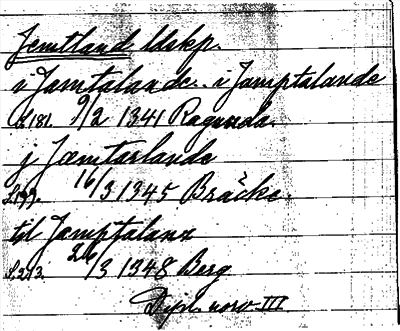 Jemtland ldskp.
i Jamtalande. i Jamptalande
s. 181. 9/2 1341 Ragunda.
j Jæmtarlande
s. 199. 16/3 1345 Bräcke.
til Jamptalanz
s. 213. 26/3 1348 Berg
Dipl. norv. III